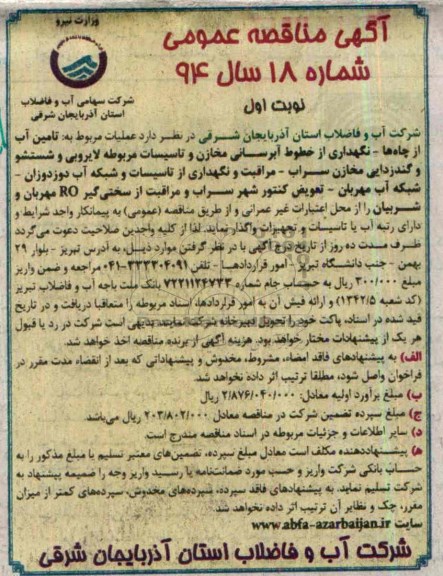 وزارت نیرو
آگهی مناقصه عمومی
شماره ۱۸ سال ۹۴
شرکت سهامی آب و فاضلاب
استان آذربایجان شرقی
نوبت اول
شرکت آب و فاضلاب استان آذربایجان شـرقی در نظـر دارد عملیات مربوط به: تامین آب
از چاه‌ها - نگهداری از خطوط آبرسـانی مخازن و تاسیسات مربوطه لایروبی و شستشو
و گندزدایی مخازن سـراب - مراقبت و نگهداری از تاسیسات و شبکه آب دوزدوزان -
شبکه آب مهربان - تعویض کنتور شهر سـراب و مراقبت از سختی‌گیر RO مهربان و
شـربیان را از محل اعتبارات غیر عمرانی و از طریق مناقصه (عمومی) به پیمانکار واجد شرایط و
دارای رتبه آب یا تاسیسات و تجهیزات واگذار نماید. لذا از کلیه واجدین صلاحیت دعوت می‌گردد
ظرف مـدت ده روز از تاریخ درج آگهی با در نظر گرفتن موارد ذیـل، به آدرس تبریز - بلوار ۲۹
بهمن - جنب دانشگاه تبریز - امور قراردادهـا - تلفن ۳۳۳۰۴۰۹۱-۰۴۱ مراجعه و ضمن واریز
مبلغ ۳۰۰/۰۰۰ ریال به حسـاب جام شماره ۷۲۲۱۱۲۴۷۳۳ بانک ملت باجه آب و فاضلاب تبریز
(کد شعبه ۱۳۴۲/۵) و ارائه فیش آن به امور قراردادها، اسناد مربوطه را متعاقبا دریافت و در تاریخ
قید شده در اسناد، پاکت خود را تحویل دبیرخانه شرکت نمایند. بدیهی است شرکت در رد یا قبول
هر یک از پیشنهادات مختار خواهد بود. هزینه آگهی از برنده مناقصه اخذ خواهد شد.
الف) به پیشنهادهای فاقد امضاء، مشروط، مخدوش و پیشنهاداتی که بعد از انقضاء مدت مقرر در
فراخوان واصل شود، مطلقا ترتیب اثر داده نخواهد شد.
ب) مبلغ برآورد اولیه معادل: ۲/۸۷۶/۰۴۰/۰۰۰ ریال
ج) مبلغ سپرده تضمین شرکت در مناقصه معادل ۲۰۳/۸۰۲/۰۰۰ ریال می‌باشد.
د) سایر اطلاعات و جزئیات مربوطه در اسناد مناقصه مندرج است.
ه) پیشـنهاددهنده مکلف است معادل مبلغ سپرده، تضمین‌های معتبر تسلیم یا مبلغ مذکور را به
حسـاب بانکی شرکت واریز و حسب مورد ضمانت‌نامه یا رسـید واریز وجه را ضمیمه پیشنهاد به
شرکت تسلیم نماید. به پیشنهادهای فاقد سپرده، سپرده‌های مخدوش، سپرده‌های کمتر از میزان
مقرر، چک و نظایر آن ترتیب اثر داده نخواهد شد.
سایت www.abfa-azarbaijan.ir
شرکت آب و فاضلاب استان آذربایجان شرقی